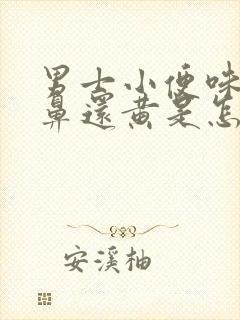 男士小便味
鼻还黄是怎
安溪柚